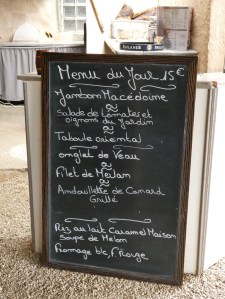 Menu du Jour 15€
Jambon Macédoine
Salade de tomates et
oignons du Jardin
Taboulé oriental
onglet de Veau
Filet de Merlan
Andouillette de Canard
Grillé
Riz au lait Caramel Maison
Soupe de Melon
Fromage blc, F. Rouge